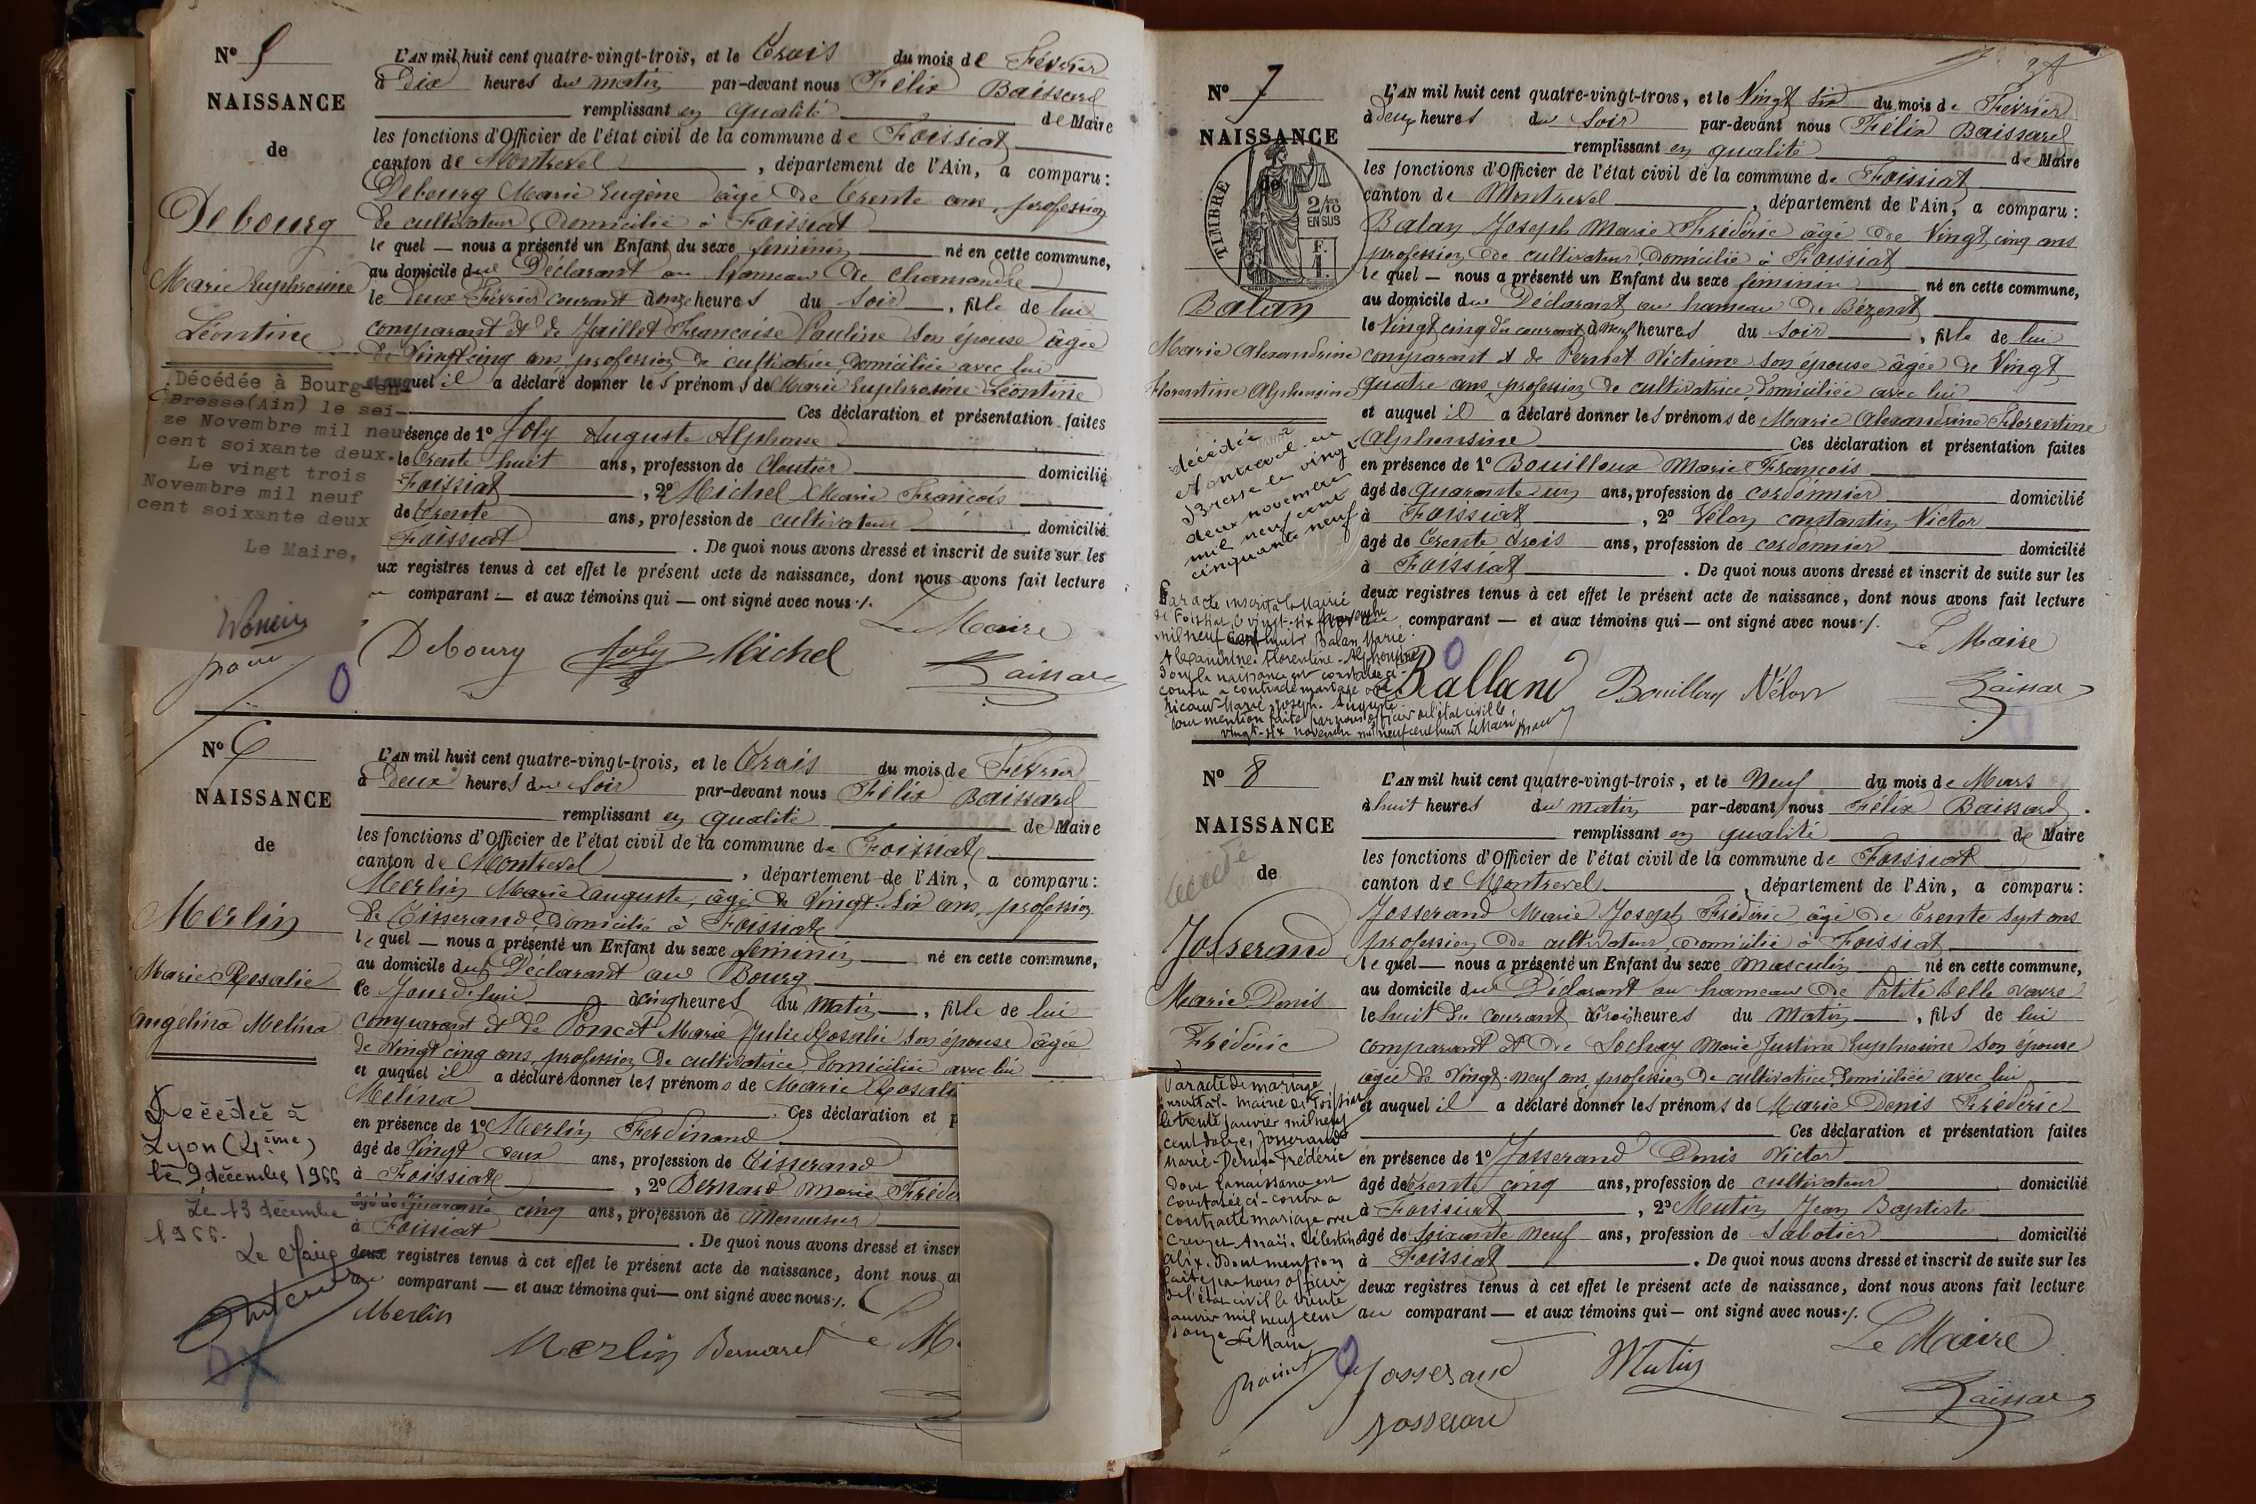 N° 5
NAISSANCE
de
Debourg
Marie Euphrosine
Léontine
Décédée à Bourg-en-
Bresse(Ain) le sei-
ze Novembre mil neuf
cent soixante deux.
Le vingt trois
Novembre mil neuf
cent soixante deux
Le Maire,
L'AN mil huit cent quatre-vingt-trois, et le Trois du mois de Février
à Dix heures du matin par-devant nous Félix Baissard
remplissant en qualité de Maire
les fonctions d'Officier de l'état civil de la commune de Foissiat
canton de Montrevel, département de l'Ain, a comparu:
Debourg Marie Eugène âgé de Trente ans, profession
de cultivateur, Domicilié à Foissiat
lequel — nous a présenté un Enfant du sexe féminin né en cette commune,
au domicile du Déclarant au hameau de Chamandre
le Deux Février courant à onze heures du soir, fille de lui
comparant et de Jaillet Françoise Pauline son épouse âgée
de Vingt cinq ans, profession de cultivatrice, Domiciliée avec lui
auquel il a déclaré donner les prénoms de Marie Euphrosine Léontine
Ces déclaration et présentation faites
ésence de 1° Joly Auguste Alphonse
le Trente huit ans, profession de Cloutier domicilié
Foissiat, 2° Michel Marie François
de Trente ans, profession de cultivateur domicilié
Foissiat. De quoi nous avons dressé et inscrit de suite sur les
ux registres tenus à cet effet le présent acte de naissance, dont nous avons fait lecture
comparant — et aux témoins qui — ont signé avec nous ./.
Le Maire
Debourg Joly Michel Baissard
N° 6
NAISSANCE
de
Merlin
Marie Rosalie
Angélina Mélina
Décédée à
Lyon (4ème)
le 9 décembre 1966
Le 13 décembre
1966.
Le Maire
L'AN mil huit cent quatre-vingt-trois, et le Trois du mois de Février
à Deux heures du Soir par-devant nous Félix Baissard
remplissant en qualité de Maire
les fonctions d'Officier de l'état civil de la commune de Foissiat
canton de Montrevel, département de l'Ain, a comparu:
Merlin Marie Auguste, âgé de Vingt-six ans, profession
de Tisserand, Domicilié à Foissiat
lequel — nous a présenté un Enfant du sexe féminin né en cette commune,
au domicile du Déclarant au Bourg
le Jourd'hui à cinq heures du matin, fille de lui
comparant et de Poncet Marie Julie Rosalie son épouse âgée
de Vingt cinq ans, profession de cultivatrice, domiciliée avec lui
et auquel il a déclaré donner les prénoms de Marie Rosalie
Mélina Ces déclaration et p
en présence de 1° Merlin Ferdinand
âgé de Vingt Deux ans, profession de Tisserand
à Foissiat, 2° Bernard Marie Fréde
âgé de Quarante cinq ans, profession de Menuisier
à Foissiat. De quoi nous avons dressé et inscr
deux registres tenus à cet effet le présent acte de naissance, dont nous a
au comparant — et aux témoins qui — ont signé avec nous ./.
Merlin
Merlin Bernard Le M
N° 7
NAISSANCE
de
TIMBRE
2/10
EN SUS
Balan
Marie Alexandrine
Florentine Alphonsine
décédée à
Montrevel en
Bresse le vingt
deux novembre
mil neuf cent
cinquante neuf
Par acte inscrit à la Mairie
de Foissiat, le vingt-six novembre
mil neuf cent huit Balan Marie
Alexandrine Florentine Alphonsine
dont la naissance est constatée ci-
contre a contracté mariage avec
Ricour Marie Joseph Auguste
dont mention faite par nous officier de l'état civil le
vingt-six novembre mil neuf cent huit Le Maire
L'AN mil huit cent quatre-vingt-trois, et le Vingt Six du mois de Février
à deux heures du soir par-devant nous Félix Baissard
remplissant en qualité de Maire
les fonctions d'Officier de l'état civil de la commune de Foissiat
canton de Montrevel, département de l'Ain, a comparu:
Balan Joseph Marie Frédéric âgé de Vingt cinq ans
profession de cultivateur, Domicilié à Foissiat
lequel — nous a présenté un Enfant du sexe féminin né en cette commune,
au domicile du Déclarant au hameau de Bézent
le Vingt cinq du courant à neuf heures du soir, fille de lui
comparant et de Pernet Victorine son épouse âgée de Vingt
quatre ans, profession de cultivatrice, domiciliée avec lui
et auquel il a déclaré donner les prénoms de Marie Alexandrine Florentine
Alphonsine Ces déclaration et présentation faites
en présence de 1° Bouilloux Marie François
âgé de quarante un ans, profession de cordonnier domicilié
à Foissiat, 2° Vélon constantin Victor
âgé de Trente trois ans, profession de cordonnier domicilié
à Foissiat. De quoi nous avons dressé et inscrit de suite sur les
deux registres tenus à cet effet le présent acte de naissance, dont nous avons fait lecture
au comparant — et aux témoins qui — ont signé avec nous ./.
Le Maire
Balland Bouilloux Vélon Baissard
N° 8
NAISSANCE
de
décédé
Josserand
Marie Denis
Frédéric
Par acte de mariage
inscrit à la mairie de Foissiat
le trente janvier mil neuf
cent douze, Josserand
Marie-Denis-Frédéric
dont la naissance est
constatée ci-contre a
contracté mariage avec
Creuzet Anaïs Célestine
Alix. Dont mention
faite par nous officier
de l'état civil le trente
janvier mil neuf cent
douze Le Maire
L'AN mil huit cent quatre-vingt-trois, et le Neuf du mois de Mars
à huit heures du matin par-devant nous Félix Baissard
remplissant en qualité de Maire
les fonctions d'Officier de l'état civil de la commune de Foissiat
canton de Montrevel, département de l'Ain, a comparu:
Josserand Marie Joseph Frédéric âgé de Trente sept ans
profession de cultivateur, Domicilié à Foissiat
lequel — nous a présenté un Enfant du sexe Masculin né en cette commune,
au domicile du Déclarant au hameau de Petite Belle vavre
le huit du courant à Trois heures du Matin, fils de lui
comparant et de Sochay Marie Justine Euphrosine son épouse
âgée de Vingt-neuf ans, profession de cultivatrice, Domiciliée avec lui
et auquel il a déclaré donner les prénoms de Marie Denis Frédéric
Ces déclaration et présentation faites
en présence de 1° Josserand Denis Victor
âgé de Trente cinq ans, profession de cultivateur domicilié
à Foissiat, 2° Mutin Jean Baptiste
âgé de Soixante Neuf ans, profession de Sabotier domicilié
à Foissiat. De quoi nous avons dressé et inscrit de suite sur les
deux registres tenus à cet effet le présent acte de naissance, dont nous avons fait lecture
au comparant — et aux témoins qui — ont signé avec nous ./.
Le Maire
Josserand Mutin Baissard
Josserand